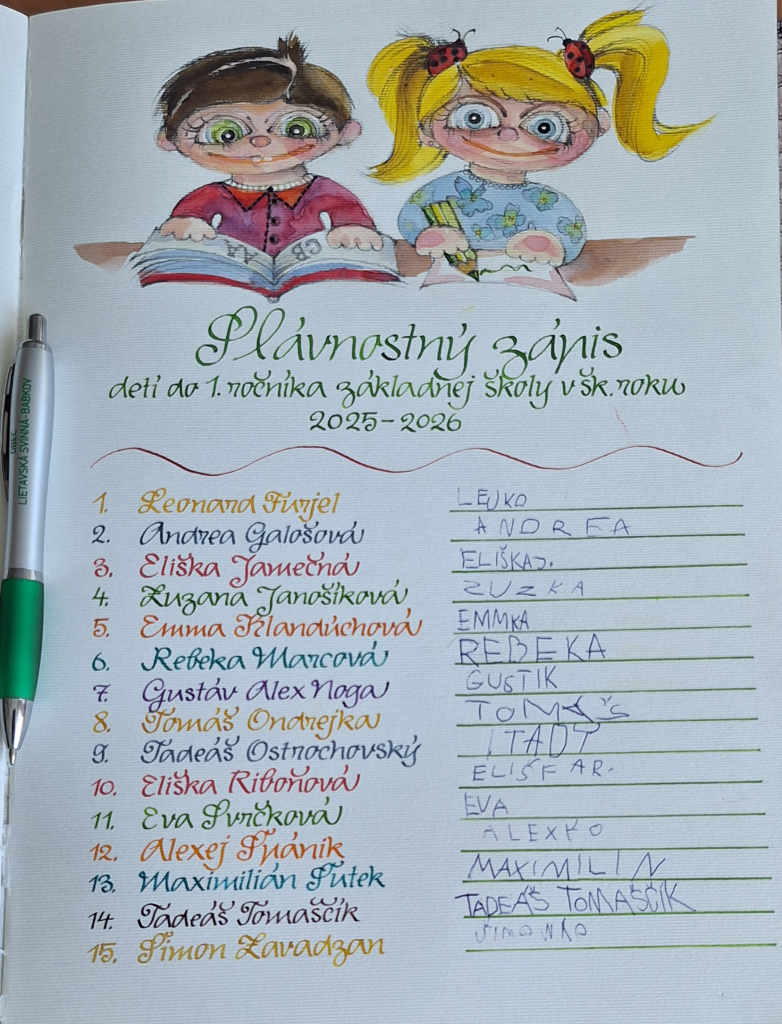 Slávnostný zápis
detí do 1. ročníka základnej školy v šk. roku
2025 – 2026
1. Leonard Furjel LEJKO
2. Andrea Galošová ANDREA
3. Eliška Jamečná ELIŠKA J.
4. Zuzana Janošíková ZUZKA
5. Emma Klandúchová EMMKA
6. Rebeka Marcová REBEKA
7. Gustáv Alex Noga GUSTIK
8. Tomáš Ondrejka TOMÁŠ
9. Tadeáš Ostrochovský
10. Eliška Riboňová ELIŠKA R.
11. Eva Svrčková EVA
12. Alexej Spánik ALEXKO
13. Maximilián Šutek MAXIMILIN
14. Tadeáš Tomaščík TADEÁŠ TOMAŠČÍK
15. Šimon Zavadzan SIMONKO
OBEC
LIETAVSKÁ SVINNÁ-BABKOV